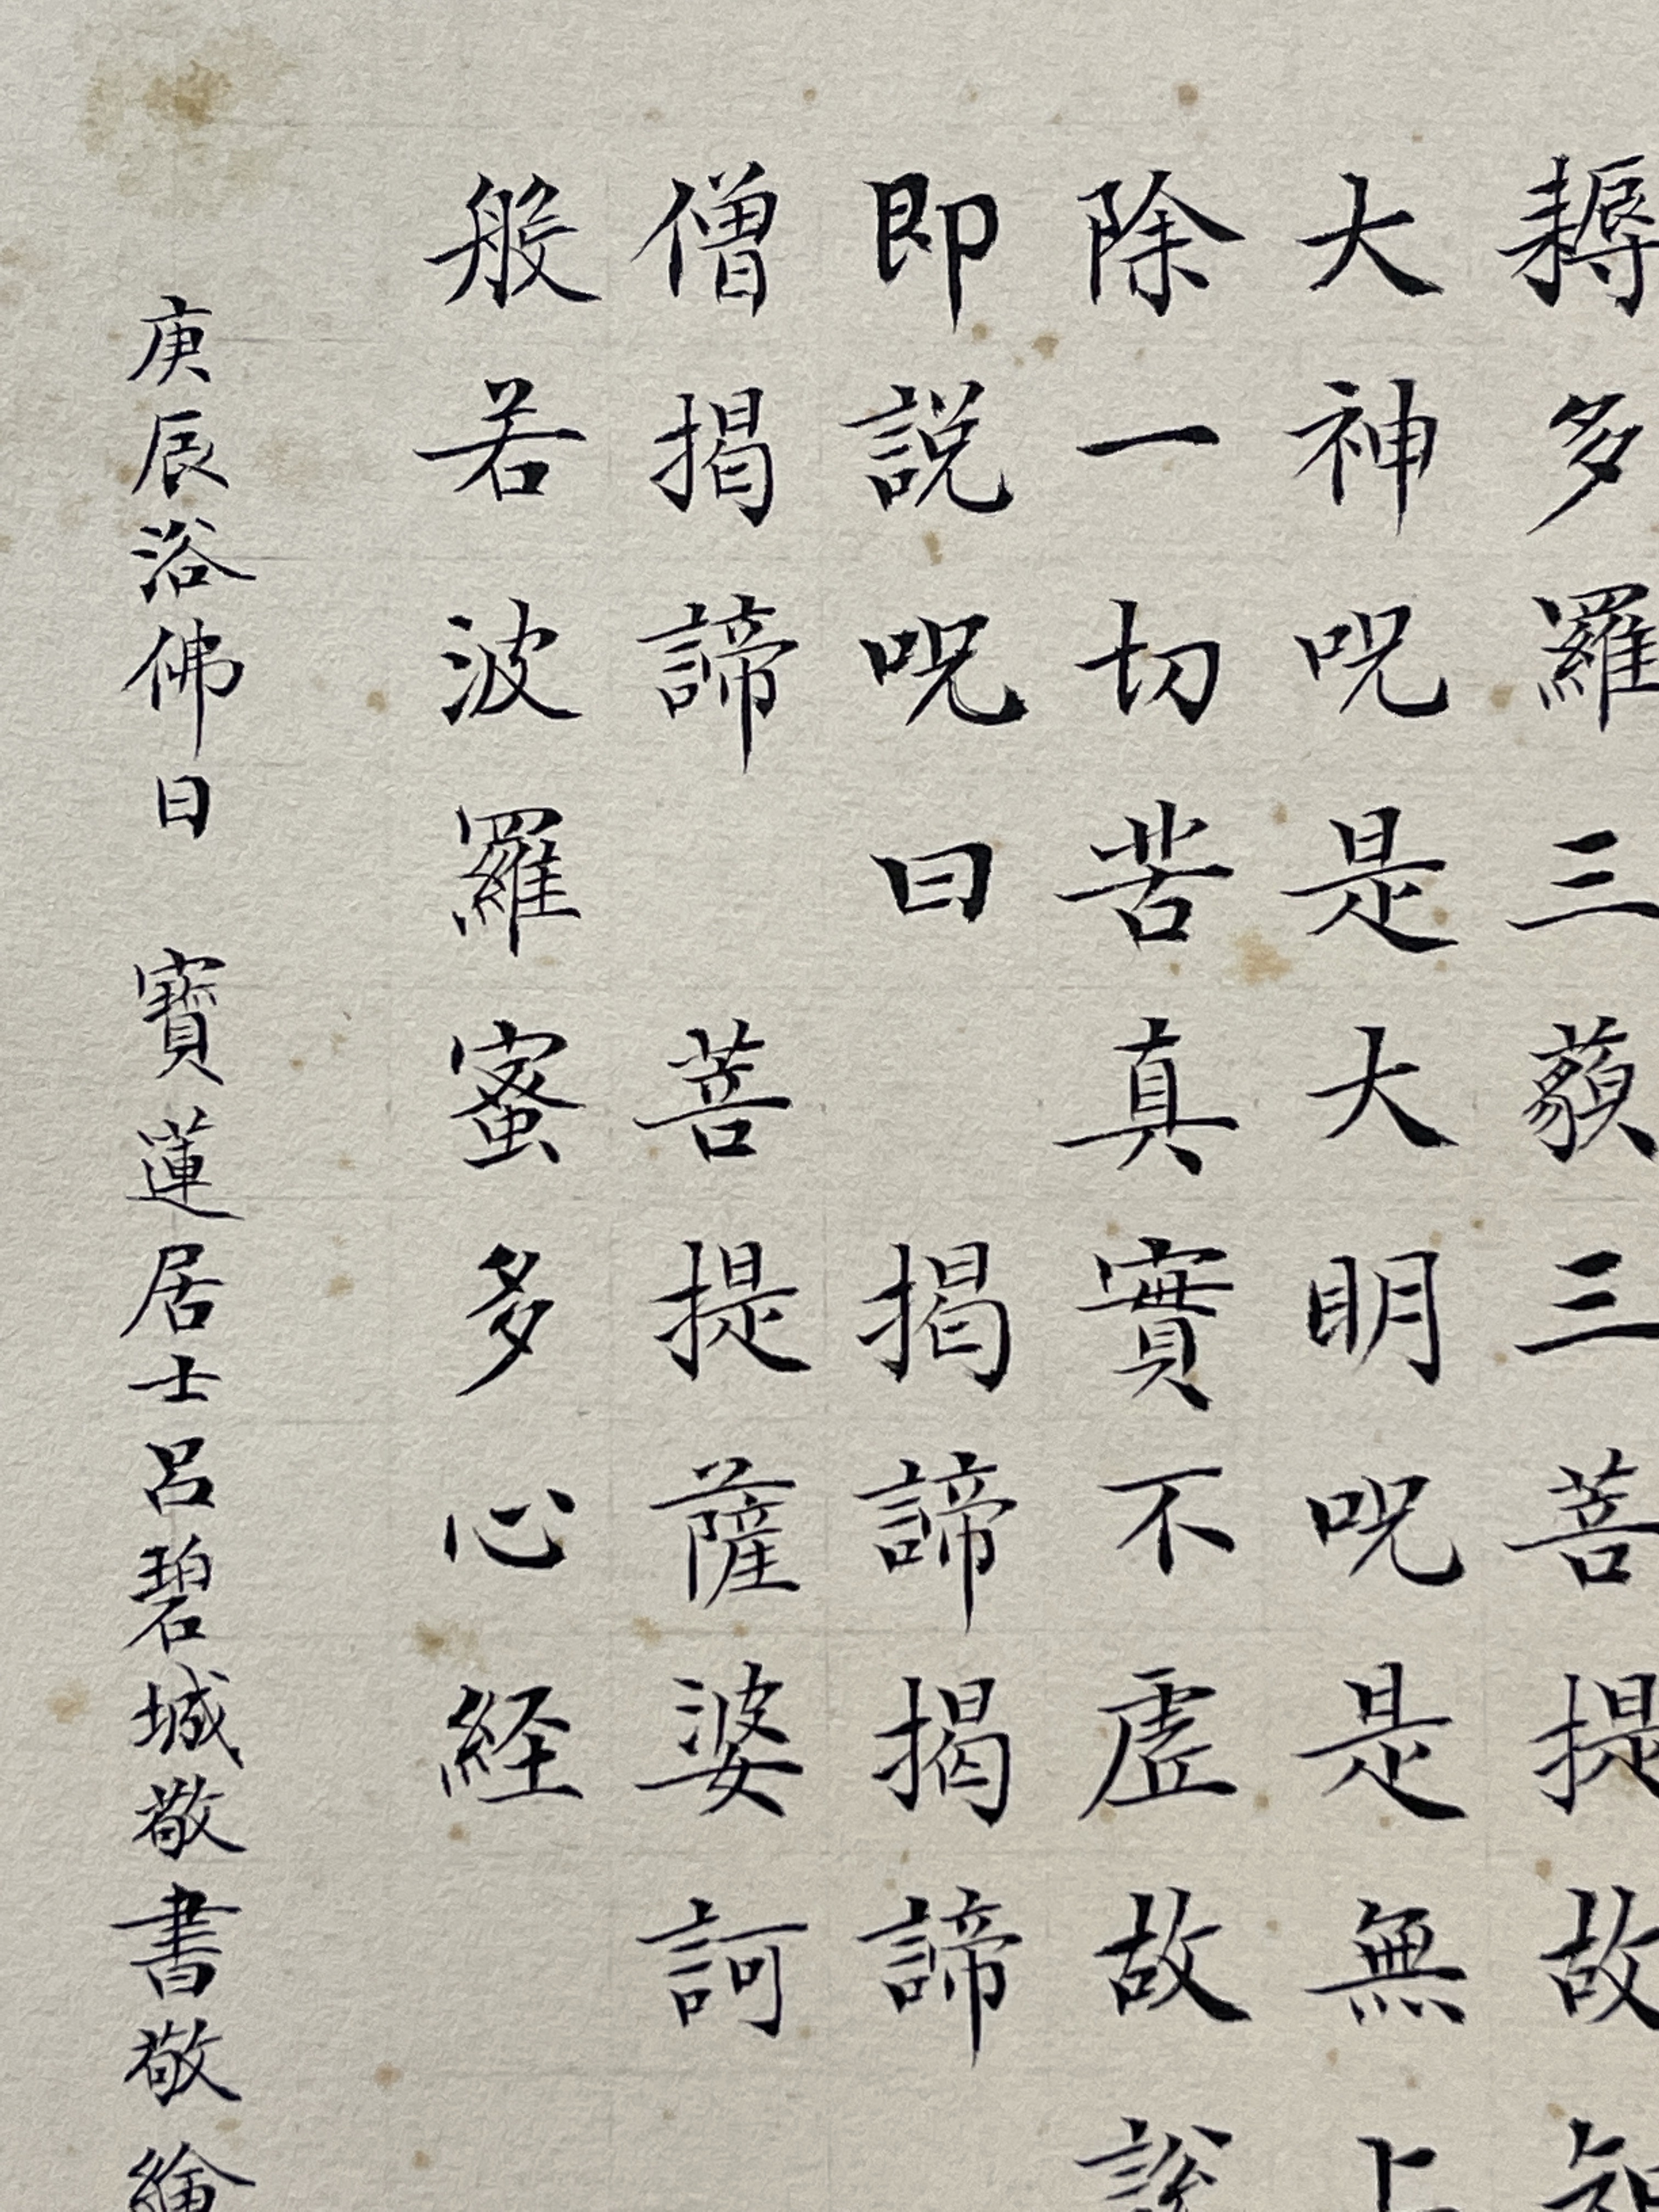 耨多羅三藐三菩提故知
大神呪是大明呪是無上
除一切苦真實不虛故說
即說呪曰 揭諦揭諦
僧揭諦 菩提薩婆訶
般若波羅蜜多心経
庚辰浴佛日 寶蓮居士呂碧城敬書敬繪